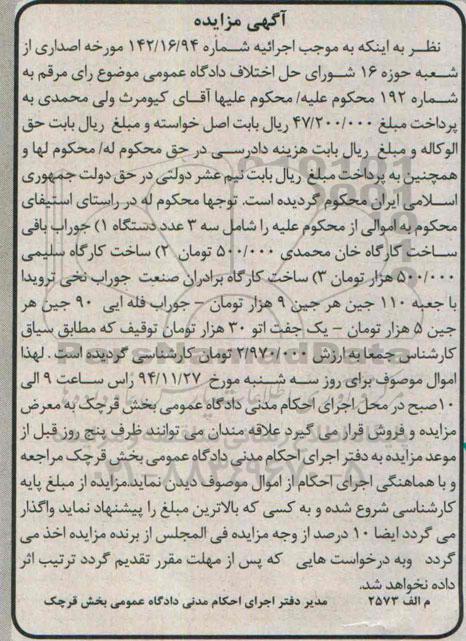 آگهی مزایده
نظر به اینکه به موجب اجرائیه شماره ۱۴۲/۱۶/۹۴ مورخه اصداری از
شعبه حوزه ۱۶ شورای حل اختلاف دادگاه عمومی موضوع رای مرقم به
شماره ۱۹۲ محکوم علیه/ محکوم علیها آقای کیومرث ولی محمدی به
پرداخت مبلغ ۴۷/۲۰۰/۰۰۰ ریال بابت اصل خواسته و مبلغ ریال بابت حق
الوکاله و مبلغ ریال بابت هزینه دادرسی در حق محکوم له/ محکوم لها و
همچنین به پرداخت مبلغ ریال بابت نیم عشر دولتی در حق دولت جمهوری
اسلامی ایران محکوم گردیده است. توجها محکوم له در راستای استیفای
محکوم به اموالی از محکوم علیه را شامل سه ۳ عدد دستگاه ۱) جوراب بافی
ساخت کارگاه خان محمدی ۵۰۰/۰۰۰ تومان ۲) ساخت کارگاه سلیمی
۵۰۰/۰۰۰ هزار تومان ۳) ساخت کارگاه برادران صنعت جوراب نخی ترویدا
با جعبه ۱۱۰ جین هر جین ۹ هزار تومان – جوراب فله ایی ۹۰ جین هر
جین ۵ هزار تومان – یک جفت اتو ۳۰ هزار تومان توقیف که مطابق سیاق
کارشناس جمعا به ارزش ۲/۹۷۰/۰۰۰ تومان کارشناسی گردیده است . لهذا
اموال موصوف برای روز سه شنبه مورخ ۹۴/۱۱/۲۷ راس ساعت ۹ الی
۱۰صبح در محل اجرای احکام مدنی دادگاه عمومی بخش قرچک به معرض
مزایده و فروش قرار می گیرد علاقه مندان می توانند ظرف پنج روز قبل از
موعد مزایده به دفتر اجرای احکام مدنی دادگاه عمومی بخش قرچک مراجعه
و با هماهنگی اجرای احکام از اموال موصوف دیدن نماید.مزایده از مبلغ پایه
کارشناسی شروع شده و به کسی که بالاترین مبلغ را پیشنهاد نماید واگذار
می گردد ایضا ۱۰ درصد از وجه مزایده فی المجلس از برنده مزایده اخذ می
گردد وبه درخواست هایی که پس از مهلت مقرر تقدیم گردد ترتیب اثر
داده نخواهد شد.
م الف ۲۵۷۳ مدیر دفتر اجرای احکام مدنی دادگاه عمومی بخش قرچک
ParsNamadData